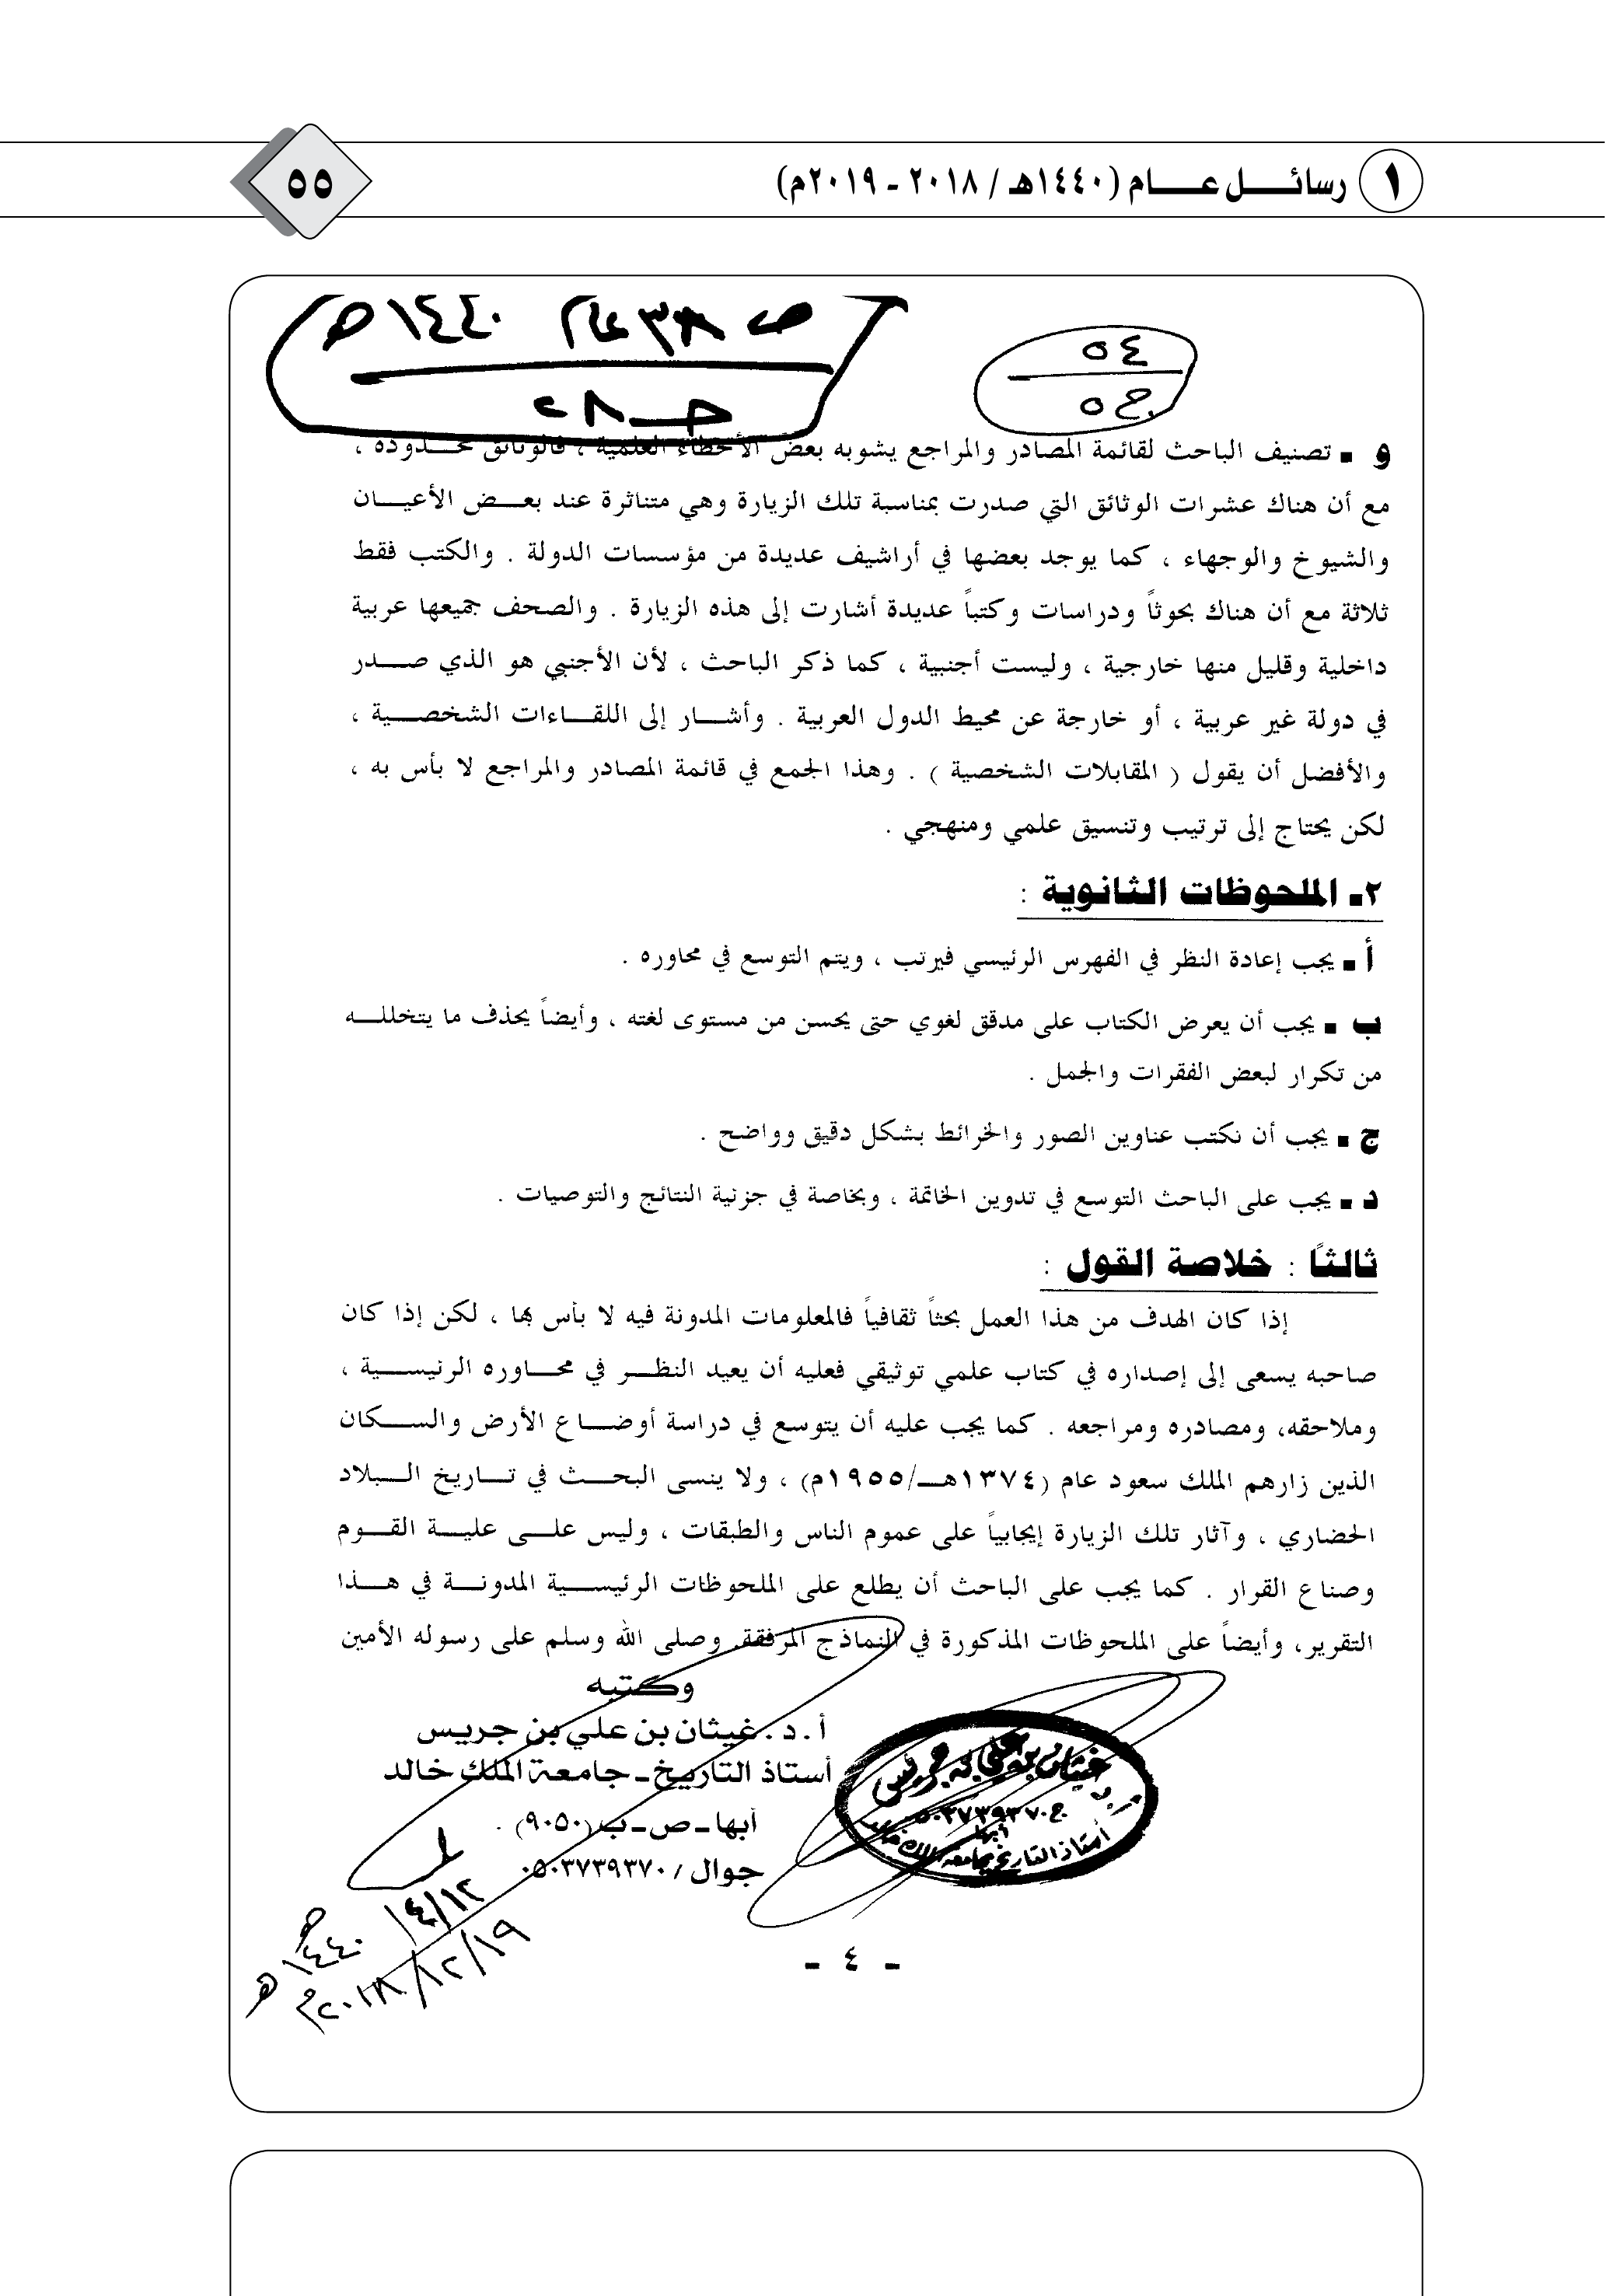 ١ رسائل عام (١٤٤٠هـ / ٢٠١٨ - ٢٠١٩م)
٥٥
٥٤
ج ٥
ص ٣٨ عام ١٤٤٠هـ
و ـ تصنيف الباحث لقائمة المصادر والمراجع يشوبه بعض الأخطاء العلمية ، فالوثائق محدودة ،
مع أن هناك عشرات الوثائق التي صدرت بمناسبة تلك الزيارة وهي متناثرة عند بعض الأعيان
والشيوخ والوجهاء ، كما يوجد بعضها في أراشيف عديدة من مؤسسات الدولة . والكتب فقط
ثلاثة مع أن هناك بحوثاً ودراسات وكتباً عديدة أشارت إلى هذه الزيارة . والصحف جميعها عربية
داخلية وقليل منها خارجية ، وليست أجنبية ، كما ذكر الباحث ، لأن الأجنبي هو الذي صدر
في دولة غير عربية ، أو خارجة عن محيط الدول العربية . وأشار إلى اللقاءات الشخصية ،
والأفضل أن يقول ( المقابلات الشخصية ) . وهذا الجمع في قائمة المصادر والمراجع لا بأس به ،
لكن يحتاج إلى ترتيب وتنسيق علمي ومنهجي .
٢ـ الملحوظات الثانوية :
أ ـ يجب إعادة النظر في الفهرس الرئيسي فيرتب ، ويتم التوسع في محاوره .
ب ـ يجب أن يعرض الكتاب على مدقق لغوي حتى يحسن من مستوى لغته ، وأيضاً يحذف ما يتخلله
من تكرار لبعض الفقرات والجمل .
ج ـ يجب أن نكتب عناوين الصور والخرائط بشكل دقيق وواضح .
د ـ يجب على الباحث التوسع في تدوين الخاتمة ، وبخاصة في جزئية النتائج والتوصيات .
ثالثاً : خلاصة القول :
إذا كان الهدف من هذا العمل بحثاً ثقافياً فالمعلومات المدونة فيه لا بأس بها ، لكن إذا كان
صاحبه يسعى إلى إصداره في كتاب علمي توثيقي فعليه أن يعيد النظر في محاوره الرئيسية ،
وملاحقه، ومصادره ومراجعه . كما يجب عليه أن يتوسع في دراسة أوضاع الأرض والسكان
الذين زارهم الملك سعود عام (١٣٧٤هـ/١٩٥٥م) ، ولا ينسى البحث في تاريخ البلاد
الحضاري ، وآثار تلك الزيارة إيجابياً على عموم الناس والطبقات ، وليس على علية القوم
وصناع القرار . كما يجب على الباحث أن يطلع على الملحوظات الرئيسية المدونة في هذا
التقرير، وأيضاً على الملحوظات المذكورة في النماذج المرفقة. وصلى الله وسلم على رسوله الأمين
وكتبه
أ . د . غيثان بن علي بن جريس
أستاذ التاريخ ـ جامعة الملك خالد
أبها ـ ص ـ ب (٩٠٥٠) .
جوال / ٠٥٠٣٧٣٩٣٧٠
غيثان بن علي بن جريس
أ.د
ج ٠٥٠٣٧٣٩٣٧٠
أبها
أستاذ التاريخ بجامعة الملك خالد
١٤/١٢
١٤٤٠ هـ
٢٠١٨/١٢/١٩م
- ٤ -